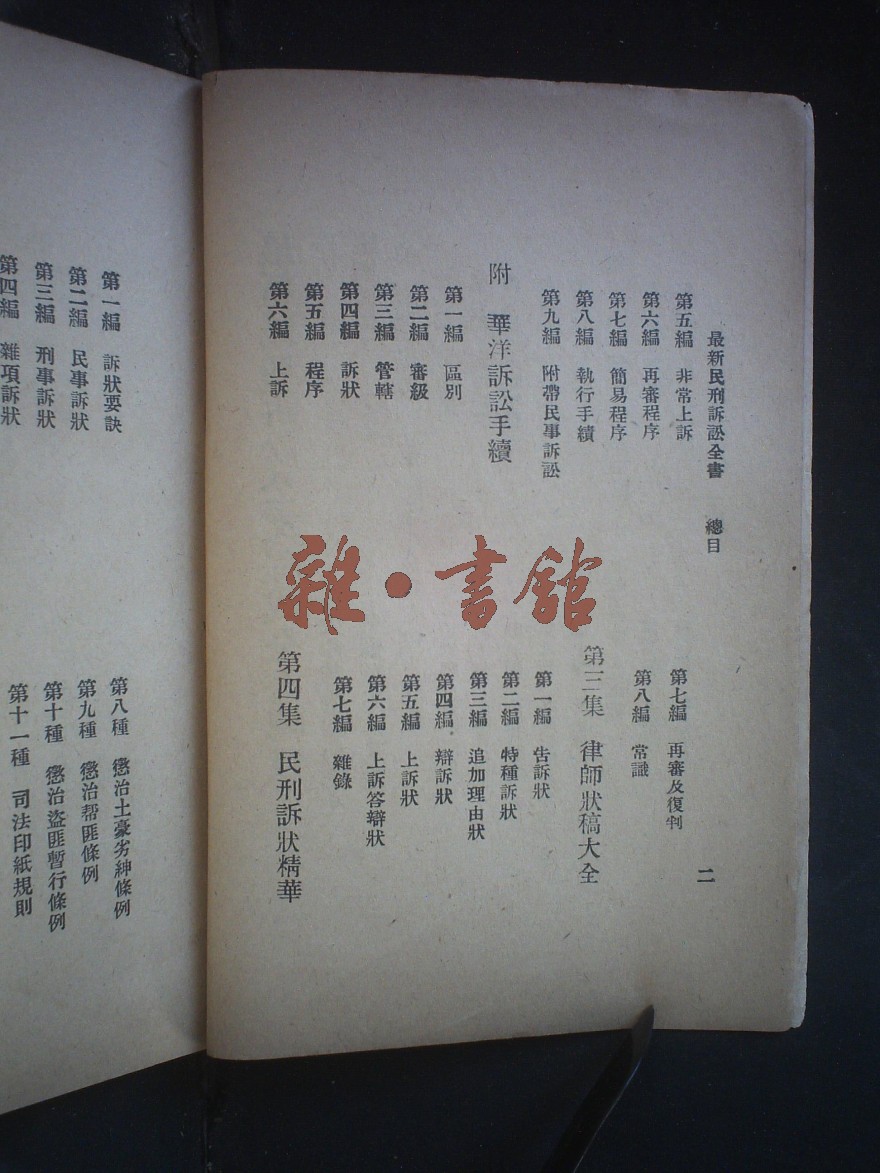 最新民刑訴訟全書 總目
二
第五編 非常上訴
第六編 再審程序
第七編 簡易程序
第八編 執行手續
第九編 附帶民事訴訟
附 華洋訴訟手續
第一編 區別
第二編 審級
第三編 管轄
第四編 訴狀
第五編 程序
第六編 上訴
第七編 再審及復判
第八編 常識
第三集 律師狀稿大全
第一編 告訴狀
第二編 特種訴狀
第三編 追加理由狀
第四編 辯訴狀
第五編 上訴狀
第六編 上訴答辯狀
第七編 雜錄
第四集 民刑訴狀精華
第一編 訴狀要訣
第二編 民事訴狀
第三編 刑事訴狀
第四編 雜項訴狀
第八種 懲治土豪劣紳條例
第九種 懲治帮匪條例
第十種 懲治盜匪暫行條例
第十一種 司法印紙規則
雜·書館